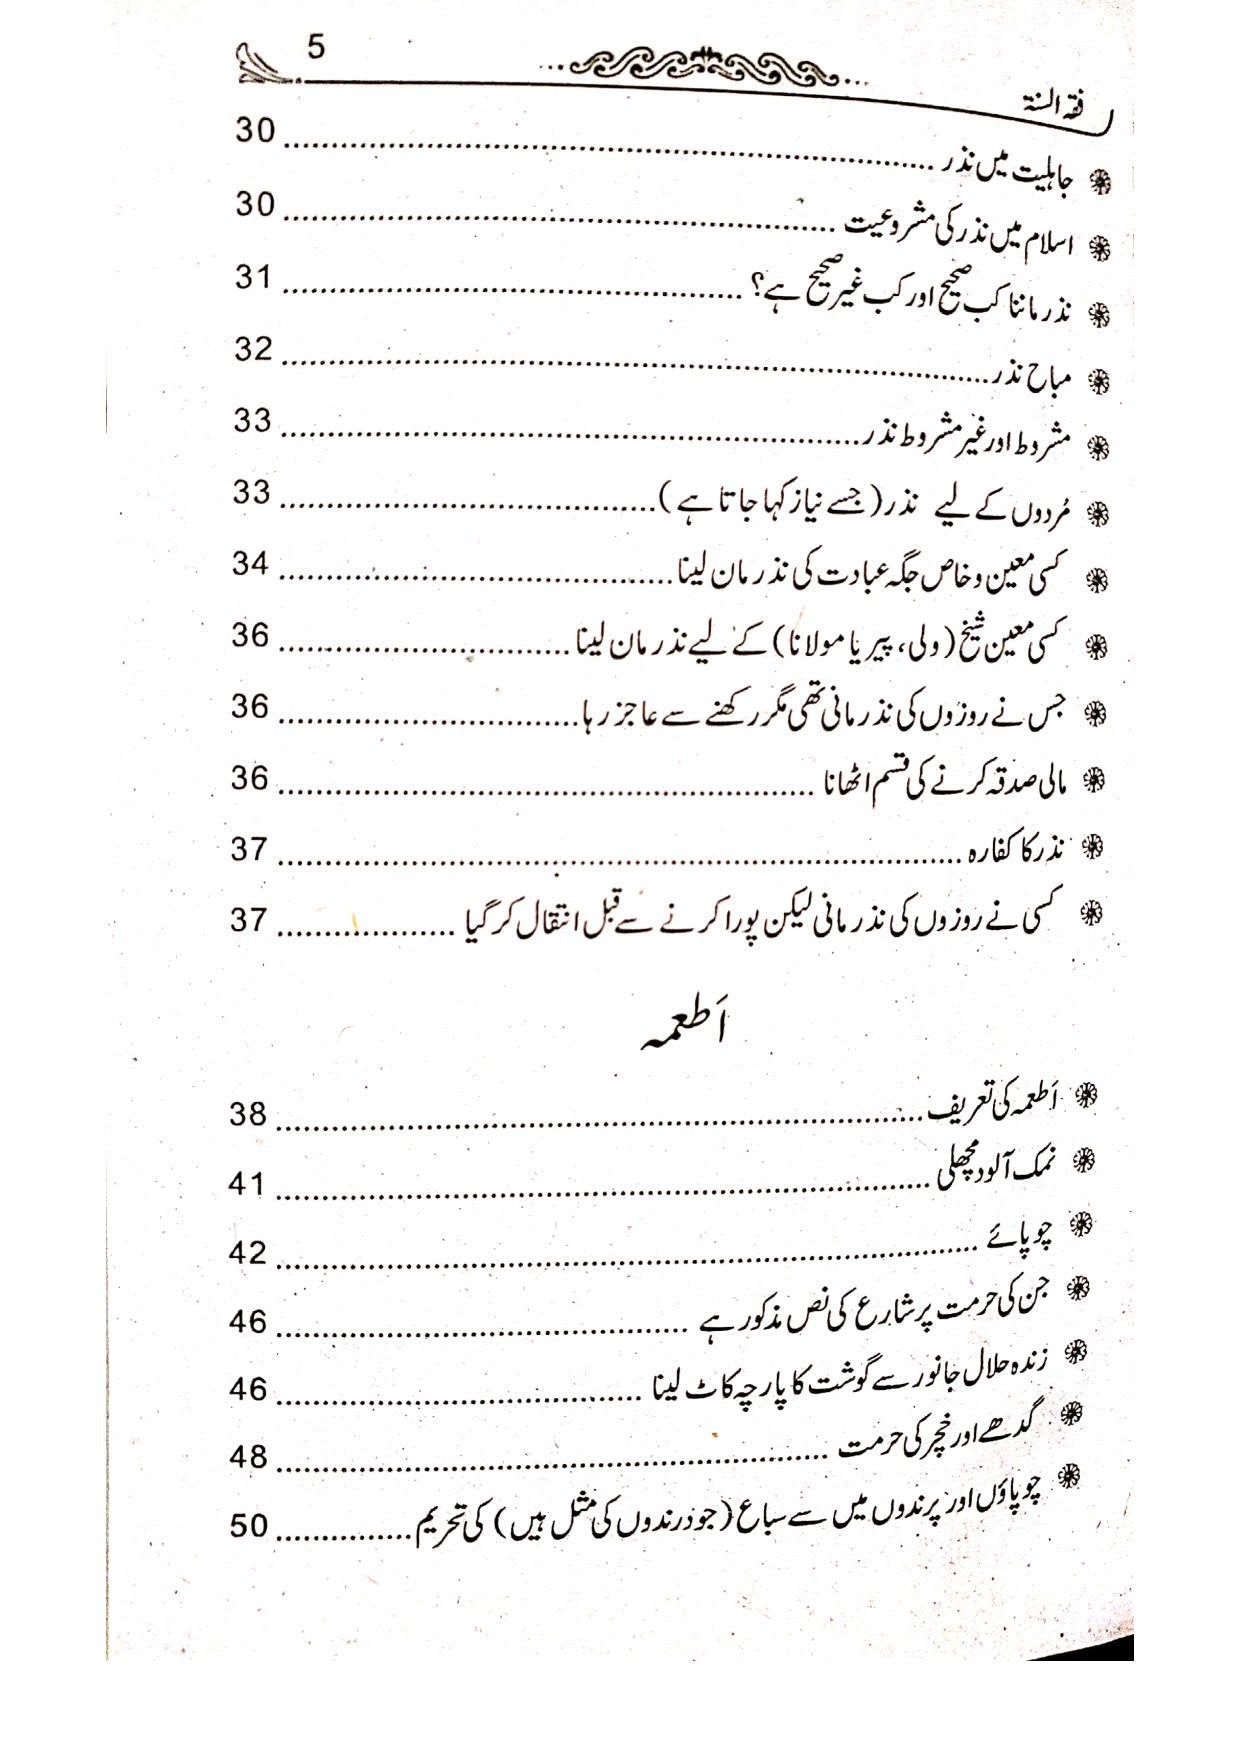 5
فقہ السنۃ
جاہلیت میں نذر ........ 30
اسلام میں نذر کی مشروعیت ........ 30
نذر ماننا کب صحیح اور کب غیر صحیح ہے؟ ........ 31
مباح نذر ........ 32
مشروط اور غیر مشروط نذر ........ 33
مُردوں کے لیے نذر (جسے نیاز کہا جاتا ہے) ........ 33
کسی معین و خاص جگہ عبادت کی نذر مان لینا ........ 34
کسی معین شیخ (ولی، پیر یا مولانا) کے لیے نذر مان لینا ........ 36
جس نے روزوں کی نذر مانی تھی مگر رکھنے سے عاجز رہا ........ 36
مالی صدقہ کرنے کی قسم اٹھانا ........ 36
نذر کا کفارہ ........ 37
کسی نے روزوں کی نذر مانی لیکن پورا کرنے سے قبل انتقال کر گیا ........ 37
اَطعمہ
اَطعمہ کی تعریف ........ 38
نمک آلود مچھلی ........ 41
چوپائے ........ 42
جن کی حرمت پر شارع کی نص مذکور ہے ........ 46
زندہ حلال جانور سے گوشت کا پارچہ کاٹ لینا ........ 46
گدھے اور خچر کی حرمت ........ 48
چوپاؤں اور پرندوں میں سے سباع (جو درندوں کی مثل ہیں) کی تحریم ........ 50